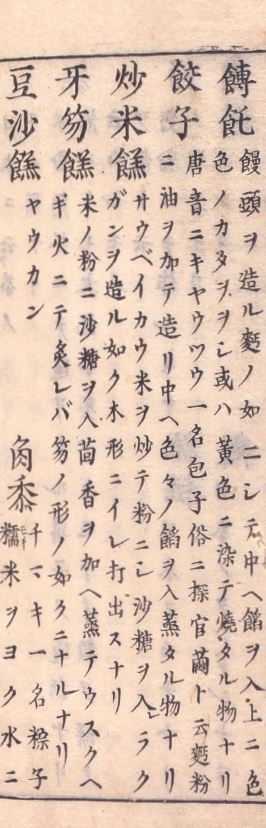 餺飥 饅頭ヲ造ル麪ノ如ニシテ中ヘ餡ヲ入上ニ色
色ノカタヲヲシ或ハ黄色ニ染テ燒タル物ナリ
餃子 唐音ニキヤウツウ一名包子俗ニ探官繭ト云麪粉
ニ油ヲ加テ造リ中ヘ色々ノ餡ヲ入蒸タル物ナリ
炒米餻 サウベイカウ米ヲ炒テ粉ニシ沙糖ヲ入ラク
ガンヲ造ル如ク木形ニイレ打出スナリ
牙笏餻 米ノ粉ニ沙糖ヲ入茴香ヲ加ヘ蒸テウスクヘ
ギ火ニテ炙レバ笏ノ形ノ如クニナルナリ
豆沙餻 ヤウカン
角黍 チマキ一名粽子
糯米ヲヨク水ニ